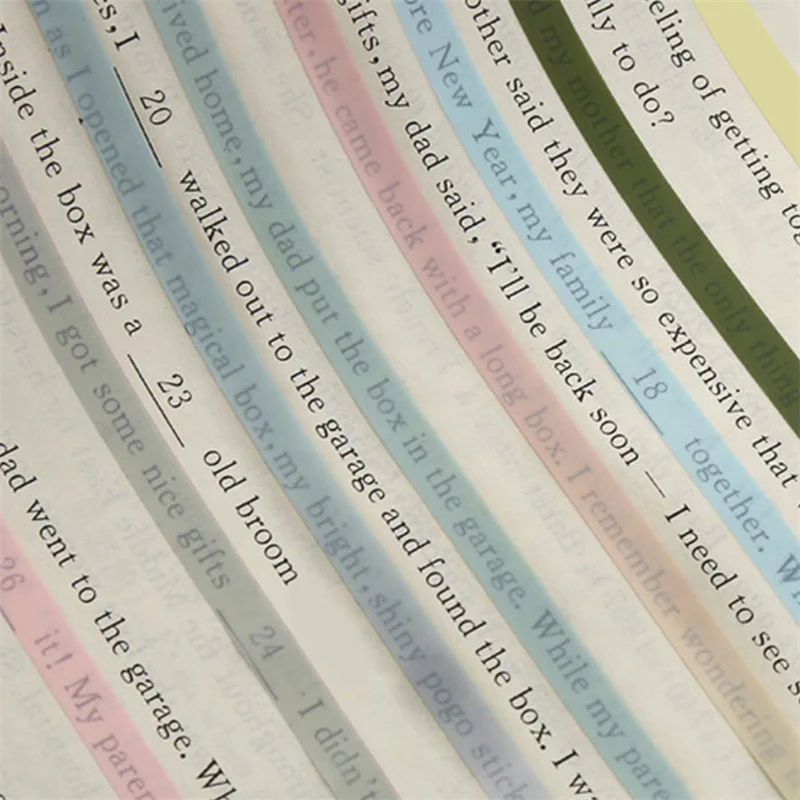 eeling of getting tog
lly to do?
d my mother that the only thing
other said they were so expensive that
ore New Year, my family 18 together. Wh
gifts, my dad said, “I'll be back soon — I need to see s
ter, he came back with a long box. I remember wondering
ived home, my dad put the box in the garage. While my pare
es, I 20 walked out to the garage and found the box. I wa
n as I opened that magical box, my bright, shiny pogo stick
Inside the box was a 23 old broom
orning, I got some nice gifts 24 . I didn't
dad went to the garage. Wh
26 it! My paren